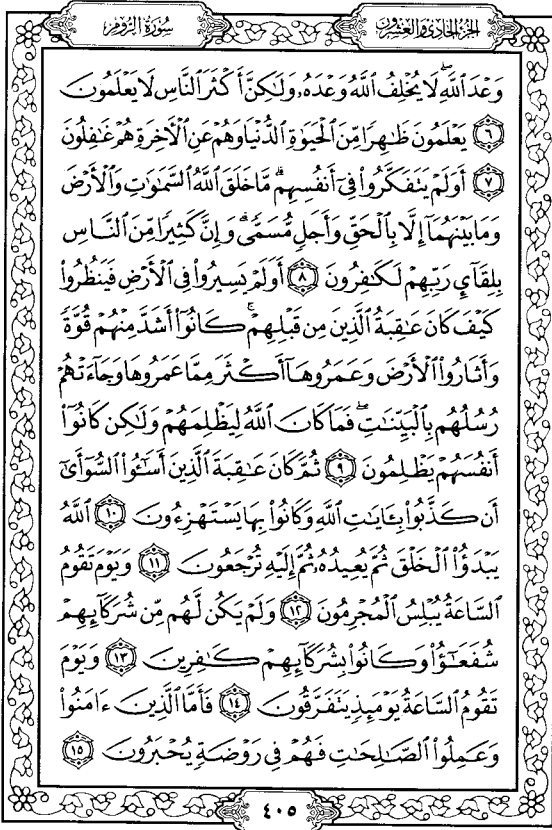 سُورَةُ الرُّومِ
الجُزْءُ الحَادِي وَالعِشْرُونَ
وَعْدَ ٱللَّهِۖ لَا يُخْلِفُ ٱللَّهُ وَعْدَهُۥ وَلَٰكِنَّ أَكْثَرَ ٱلنَّاسِ لَا يَعْلَمُونَ
٦ يَعْلَمُونَ ظَٰهِرًا مِّنَ ٱلْحَيَوٰةِ ٱلدُّنْيَا وَهُمْ عَنِ ٱلْءَاخِرَةِ هُمْ غَٰفِلُونَ
٧ أَوَلَمْ يَتَفَكَّرُوا۟ فِىٓ أَنفُسِهِمۗ مَّا خَلَقَ ٱللَّهُ ٱلسَّمَٰوَٰتِ وَٱلْأَرْضَ
وَمَا بَيْنَهُمَآ إِلَّا بِٱلْحَقِّ وَأَجَلٍ مُّسَمًّىۗ وَإِنَّ كَثِيرًا مِّنَ ٱلنَّاسِ
بِلِقَآئِ رَبِّهِمْ لَكَٰفِرُونَ ٨ أَوَلَمْ يَسِيرُوا۟ فِى ٱلْأَرْضِ فَيَنظُرُوا۟
كَيْفَ كَانَ عَٰقِبَةُ ٱلَّذِينَ مِن قَبْلِهِمْۚ كَانُوٓا۟ أَشَدَّ مِنْهُمْ قُوَّةً
وَأَثَارُوا۟ ٱلْأَرْضَ وَعَمَرُوهَآ أَكْثَرَ مِمَّا عَمَرُوهَا وَجَآءَتْهُمْ
رُسُلُهُم بِٱلْبَيِّنَٰتِۖ فَمَا كَانَ ٱللَّهُ لِيَظْلِمَهُمْ وَلَٰكِن كَانُوٓا۟
أَنفُسَهُمْ يَظْلِمُونَ ٩ ثُمَّ كَانَ عَٰقِبَةَ ٱلَّذِينَ أَسَٰٓـُٔوا۟ ٱلسُّوٓأَىٰٓ
أَن كَذَّبُوا۟ بِـَٔايَٰتِ ٱللَّهِ وَكَانُوا۟ بِهَا يَسْتَهْزِءُونَ ١٠ ٱللَّهُ
يَبْدَؤُا۟ ٱلْخَلْقَ ثُمَّ يُعِيدُهُۥ ثُمَّ إِلَيْهِ تُرْجَعُونَ ١١ وَيَوْمَ تَقُومُ
ٱلسَّاعَةُ يُبْلِسُ ٱلْمُجْرِمُونَ ١٢ وَلَمْ يَكُن لَّهُم مِّن شُرَكَآئِهِمْ
شُفَعَٰٓؤُا۟ وَكَانُوا۟ بِشُرَكَآئِهِمْ كَٰفِرِينَ ١٣ وَيَوْمَ
تَقُومُ ٱلسَّاعَةُ يَوْمَئِذٍ يَتَفَرَّقُونَ ١٤ فَأَمَّا ٱلَّذِينَ ءَامَنُوا۟
وَعَمِلُوا۟ ٱلصَّٰلِحَٰتِ فَهُمْ فِى رَوْضَةٍ يُحْبَرُونَ ١٥
٤٠٥